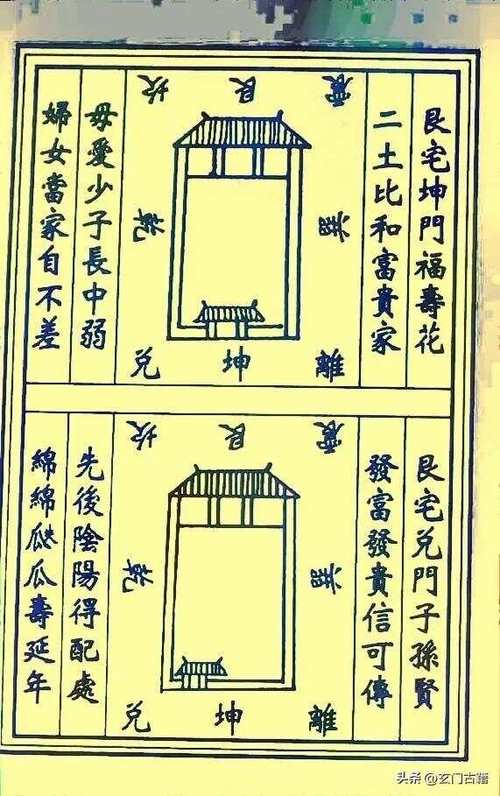 艮宅坤門福壽花
二土比和富貴家
震
艮
坎
巽
乾
離
坤
兑
母愛少子長中弱
婦女當家自不差
艮宅兑門子孫賢
發富發貴信可傳
震
艮
坎
巽
乾
離
坤
兑
先後陰陽得配處
綿綿瓞瓜壽延年
头条@玄门古籍